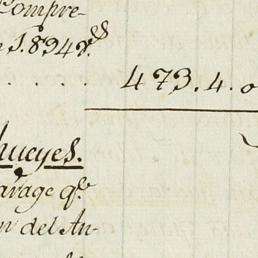 Compre-
n 1.894 r.^s
. . . . . 473.4.0
hucyes.
avage q.^e
n del An-